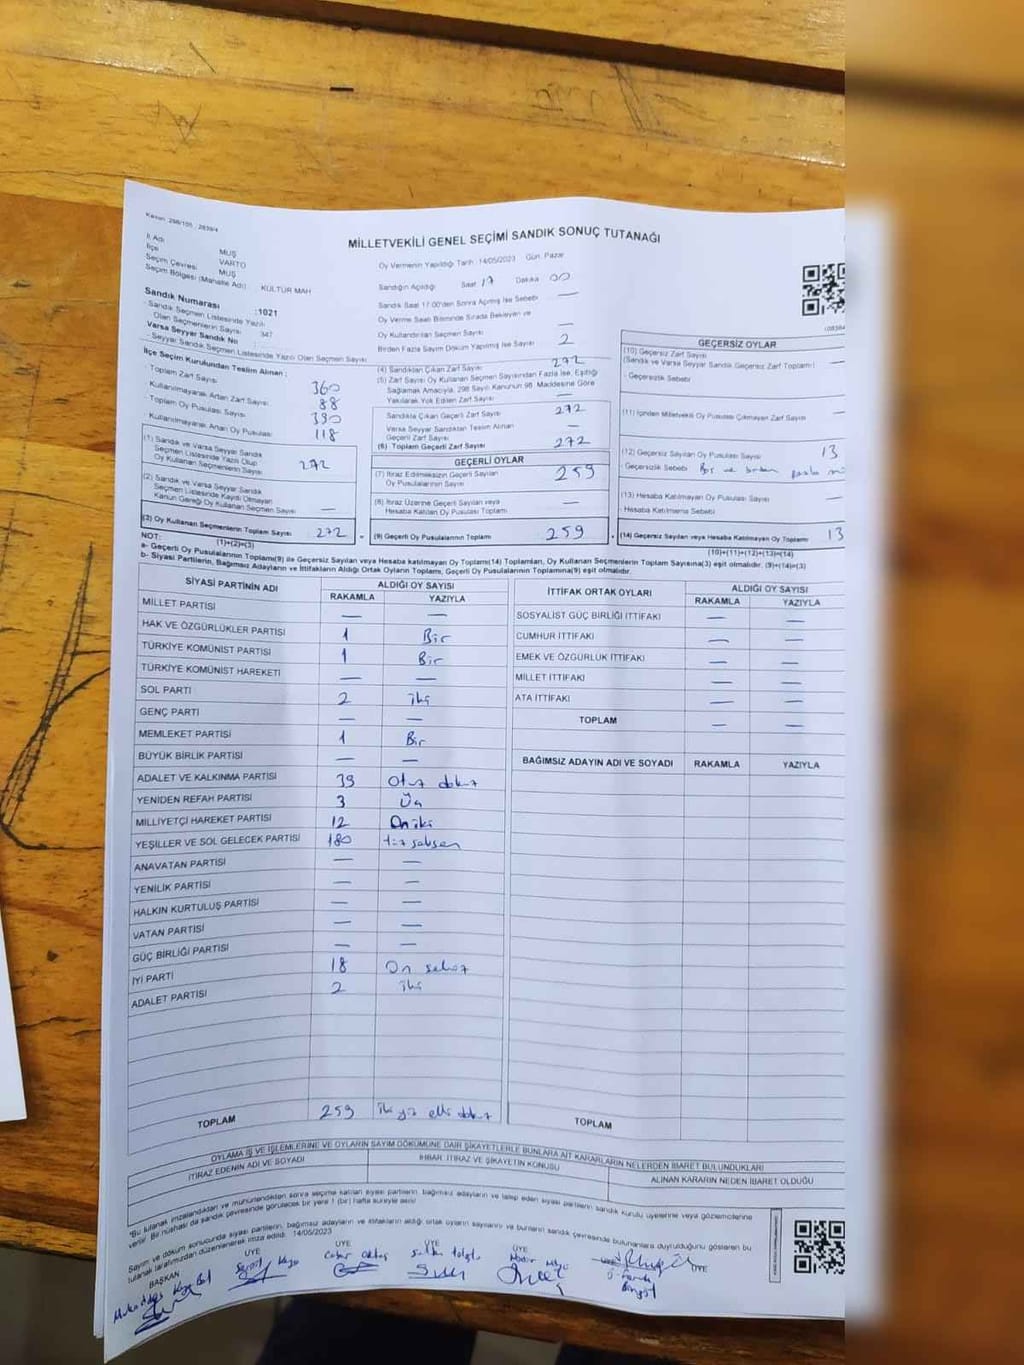 MİLLETVEKİLİ GENEL SEÇİMİ SANDIK SONUÇ TUTANAĞI
İl Adı : MUŞ
İlçe : VARTO
Seçim Çevresi : MUŞ
Seçim Bölgesi (Mahalle Adı) : KÜLTÜR MAH
Sandık Numarası :1021
- Sandık Seçmen Listesinde Yazılı
Olan Seçmenlerin Sayısı : 347
Varsa Seyyar Sandık No
- Seyyar Sandık Seçmen Listesinde Yazılı Olan Seçmen Sayısı
Oy Vermenin Yapıldığı Tarih :14/05/2023 Gün: Pazar
Sandığın Açıldığı Saat 17 Dakika 00
Sandık Saat 17:00'den Sonra Açılmış İse Sebebi —
Oy Verme Saati Bitiminde Sırada Bekleyen ve
Oy Kullandırılan Seçmen Sayısı —
Birden Fazla Sayım Döküm Yapılmış İse Sayısı 2
İlçe Seçim Kurulundan Teslim Alınan :
- Toplam Zarf Sayısı 360
Kullanılmayarak Artan Zarf Sayısı 88
- Toplam Oy Pusulası Sayısı 390
Kullanılmayarak Artan Oy Pusulası 118
(1) Sandık ve Varsa Seyyar Sandık
Seçmen Listesinde Yazılı Olup
Oy Kullanan Seçmenlerin Sayısı 272
(2) Sandık ve Varsa Seyyar Sandık
Seçmen Listesinde Kaydı Olmayan
Kanun Gereği Oy Kullanan Seçmen Sayısı —
(3) Oy Kullanan Seçmenlerin Toplam Sayısı : 272
(1)+(2)=(3)
(4) Sandıktan Çıkan Zarf Sayısı 272
(5) Zarf Sayısı Oy Kullanan Seçmen Sayısından Fazla İse, Eşitliği
Sağlamak Amacıyla, 298 Sayılı Kanunun 98. Maddesine Göre
Yakılarak Yok Edilen Zarf Sayısı —
Sandıkta Çıkan Geçerli Zarf Sayısı 272
Varsa Seyyar Sandıktan Teslim Alınan
Geçerli Zarf Sayısı —
(6) Toplam Geçerli Zarf Sayısı 272
GEÇERLİ OYLAR
(7) İtiraz Edilmeksizin Geçerli Sayılan
Oy Pusulalarının Sayısı 259
(8) İtiraz Üzerine Geçerli Sayılan veya
Hesaba Katılan Oy Pusulası Toplamı —
(9) Geçerli Oy Pusulalarının Toplamı 259
GEÇERSİZ OYLAR
(10) Geçersiz Zarf Sayısı
(Sandık ve Varsa Seyyar Sandık Geçersiz Zarf Toplamı) —
- Geçersizlik Sebebi
(11) İçinden Milletvekili Oy Pusulası Çıkmayan Zarf Sayısı —
(12) Geçersiz Sayılan Oy Pusulası Sayısı 13
- Geçersizlik Sebebi
(13) Hesaba Katılmayan Oy Pusulası Sayısı —
- Hesaba Katılmama Sebebi
(14) Geçersiz Sayılan veya Hesaba Katılmayan Oy Toplamı 13
(10)+(11)+(12)+(13)=(14)
NOT:
a- Geçerli Oy Pusulalarının Toplamı(9) ile Geçersiz Sayılan veya Hesaba katılmayan Oy Toplamı(14) Toplamları, Oy Kullanan Seçmenlerin Toplam Sayısına(3) eşit olmalıdır. (9)+(14)=(3)
b- Siyasi Partilerin, Bağımsız Adayların ve İttifakların Aldığı Ortak Oyların Toplamı, Geçerli Oy Pusulalarının Toplamına(9) eşit olmalıdır.
SİYASİ PARTİNİN ADI ALDIĞI OY SAYISI
RAKAMLA YAZIYLA
MİLLET PARTİSİ — —
HAK VE ÖZGÜRLÜKLER PARTİSİ 1 Bir
TÜRKİYE KOMÜNİST PARTİSİ 1 Bir
TÜRKİYE KOMÜNİST HAREKETİ — —
SOL PARTİ 2 iki
GENÇ PARTİ — —
MEMLEKET PARTİSİ 1 Bir
BÜYÜK BİRLİK PARTİSİ — —
ADALET VE KALKINMA PARTİSİ 39 Otuz dokuz
YENİDEN REFAH PARTİSİ 3 Üç
MİLLİYETÇİ HAREKET PARTİSİ 12 On iki
YEŞİLLER VE SOL GELECEK PARTİSİ 180 yüz seksen
ANAVATAN PARTİSİ — —
YENİLİK PARTİSİ — —
HALKIN KURTULUŞ PARTİSİ — —
VATAN PARTİSİ — —
GÜÇ BİRLİĞİ PARTİSİ — —
İYİ PARTİ 18 On sekiz
ADALET PARTİSİ 2 iki
TOPLAM 259 iki yüz elli dokuz
İTTİFAK ORTAK OYLARI ALDIĞI OY SAYISI
RAKAMLA YAZIYLA
SOSYALİST GÜÇ BİRLİĞİ İTTİFAKI — —
CUMHUR İTTİFAKI — —
EMEK VE ÖZGÜRLÜK İTTİFAKI — —
MİLLET İTTİFAKI — —
ATA İTTİFAKI — —
TOPLAM — —
BAĞIMSIZ ADAYIN ADI VE SOYADI RAKAMLA YAZIYLA
TOPLAM
OYLAMA İŞ VE İŞLEMLERİNE VE OYLARIN SAYIM DÖKÜMÜNE DAİR ŞİKAYETLERLE BUNLARA AİT KARARLARIN NELERDEN İBARET BULUNDUKLARI
İTİRAZ EDENİN ADI VE SOYADI İHBAR, İTİRAZ VE ŞİKAYETİN KONUSU ALINAN KARARIN NEDEN İBARET OLDUĞU
14/05/2023
BAŞKAN ÜYE ÜYE ÜYE ÜYE